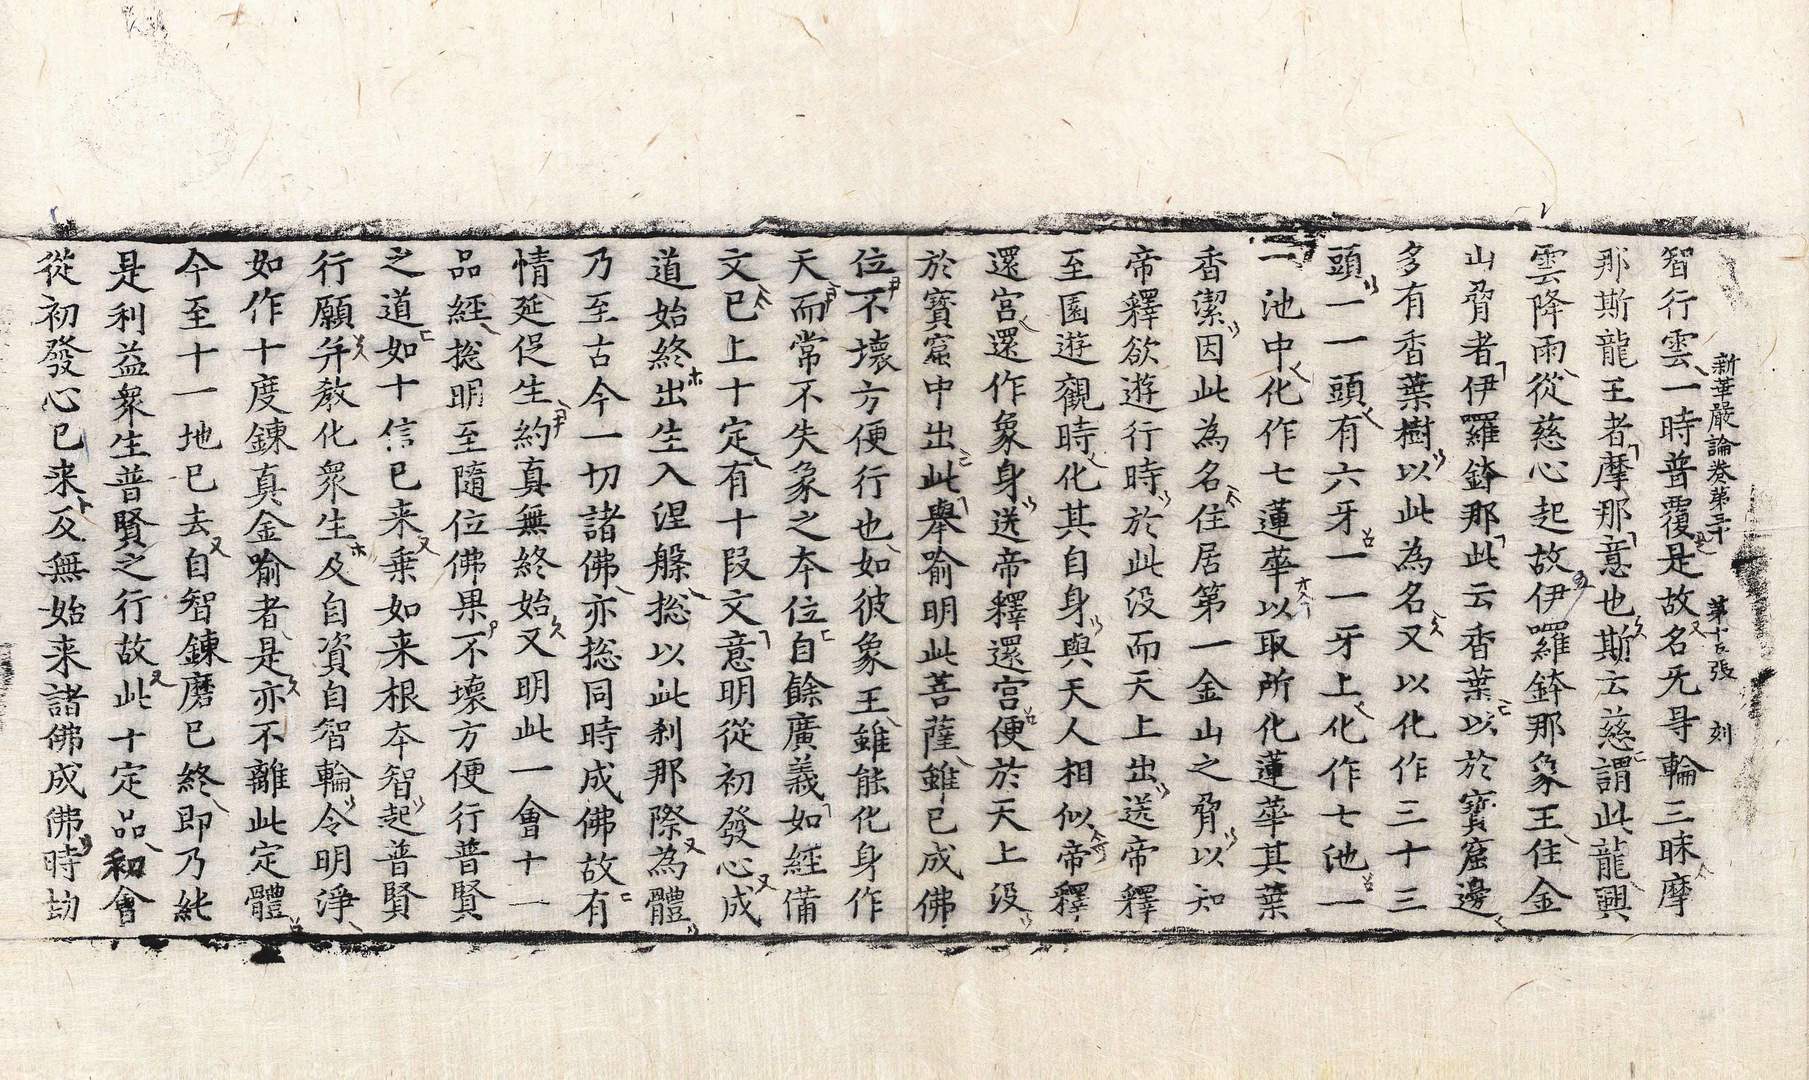 新華嚴論卷第三十 第十五張 刻
智行雲一時普覆是故名无㝵輪三昧摩
那斯龍王者摩那意也斯云慈謂此龍興
雲降雨從慈心起故伊囉鉢那象王住金
山脅者伊羅鉢那此云香葉以於寶窟邊
多有香葉樹以此為名又以化作三十三
頭一一頭有六牙一一牙上化作七池一
一池中化作七蓮華以取所化蓮華其葉
香潔因此為名住居第一金山之脅以知
帝釋欲遊行時於此没而天上出送帝釋
至園遊觀時化其自身與天人相似帝釋
還宮還作象身送帝釋還宮便於天上没
於寶窟中出此舉喻明此菩薩雖已成佛
位不壞方便行也如彼象王雖能化身作
天而常不失象之本位自餘廣義如經備
文已上十定有十段文意明從初發心成
道始終出生入涅槃揔以此刹那際為體
乃至古今一切諸佛亦揔同時成佛故有
情延促生約真無終始又明此一會十一
品經揔明至隨位佛果不壞方便行普賢
之道如十信已来乗如来根本智起普賢
行願并教化衆生及自資自智輪令明淨
如作十度鍊真金喻者是亦不離此定體
今至十一地已去自智鍊磨已終即乃純
是利益衆生普賢之行故此十定品初會
從初發心已来及無始来諸佛成佛時劫